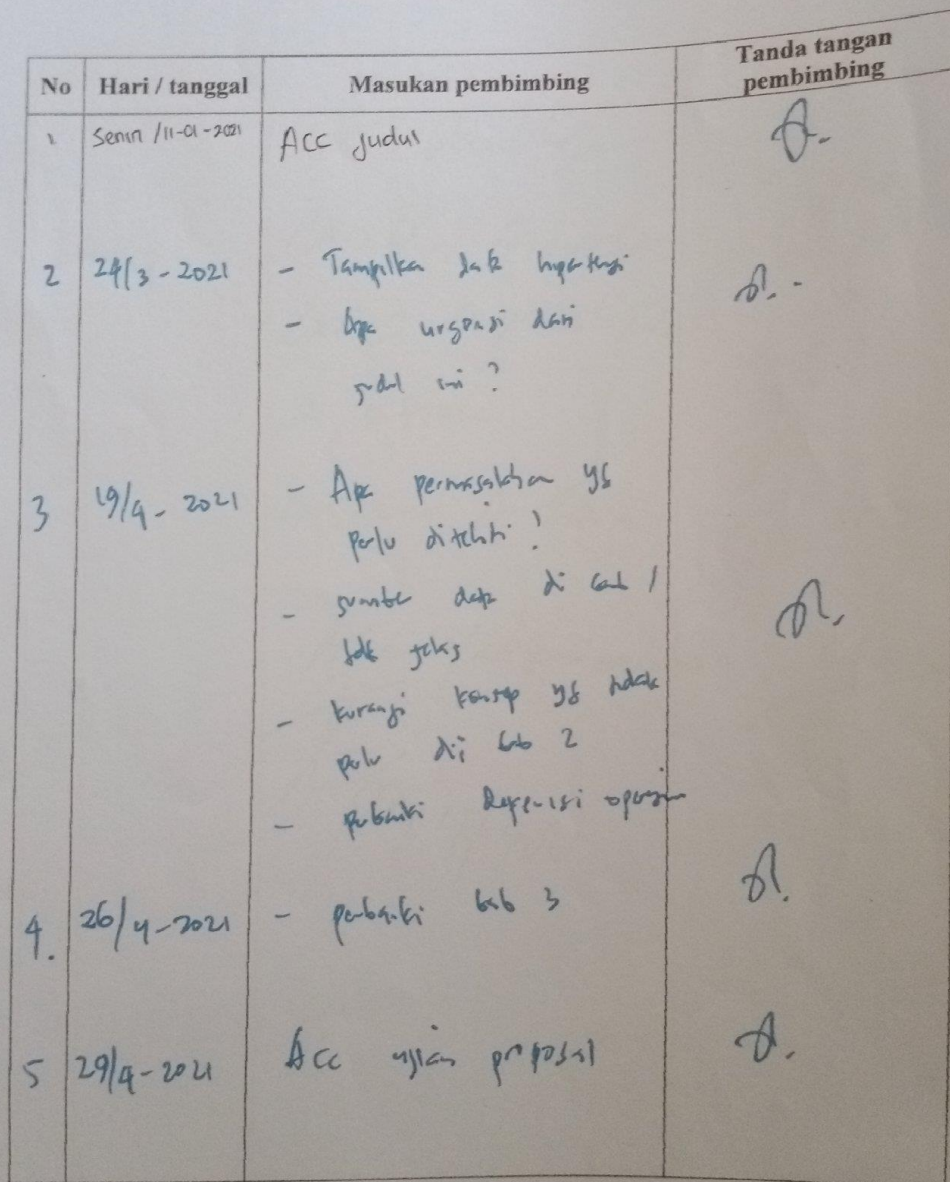 No Hari / tanggal Masukan pembimbing Tanda tangan pembimbing
1 Senin / 11-01-2021 ACC Judul
2 24/3-2021 - Tampilka data hipertensi
- Apa urgensi dari
judul ini ?
3 19/4-2021 - Apa permasalahan yg
perlu diteliti ?
- sumber data di bab 1
tdk jelas
- kurangi konsep yg tidak
perlu di bab 2
- perbaiki Definisi
4. 26/4-2021 - perbaiki bab 3
5 29/4-2021 Acc ujian proposal